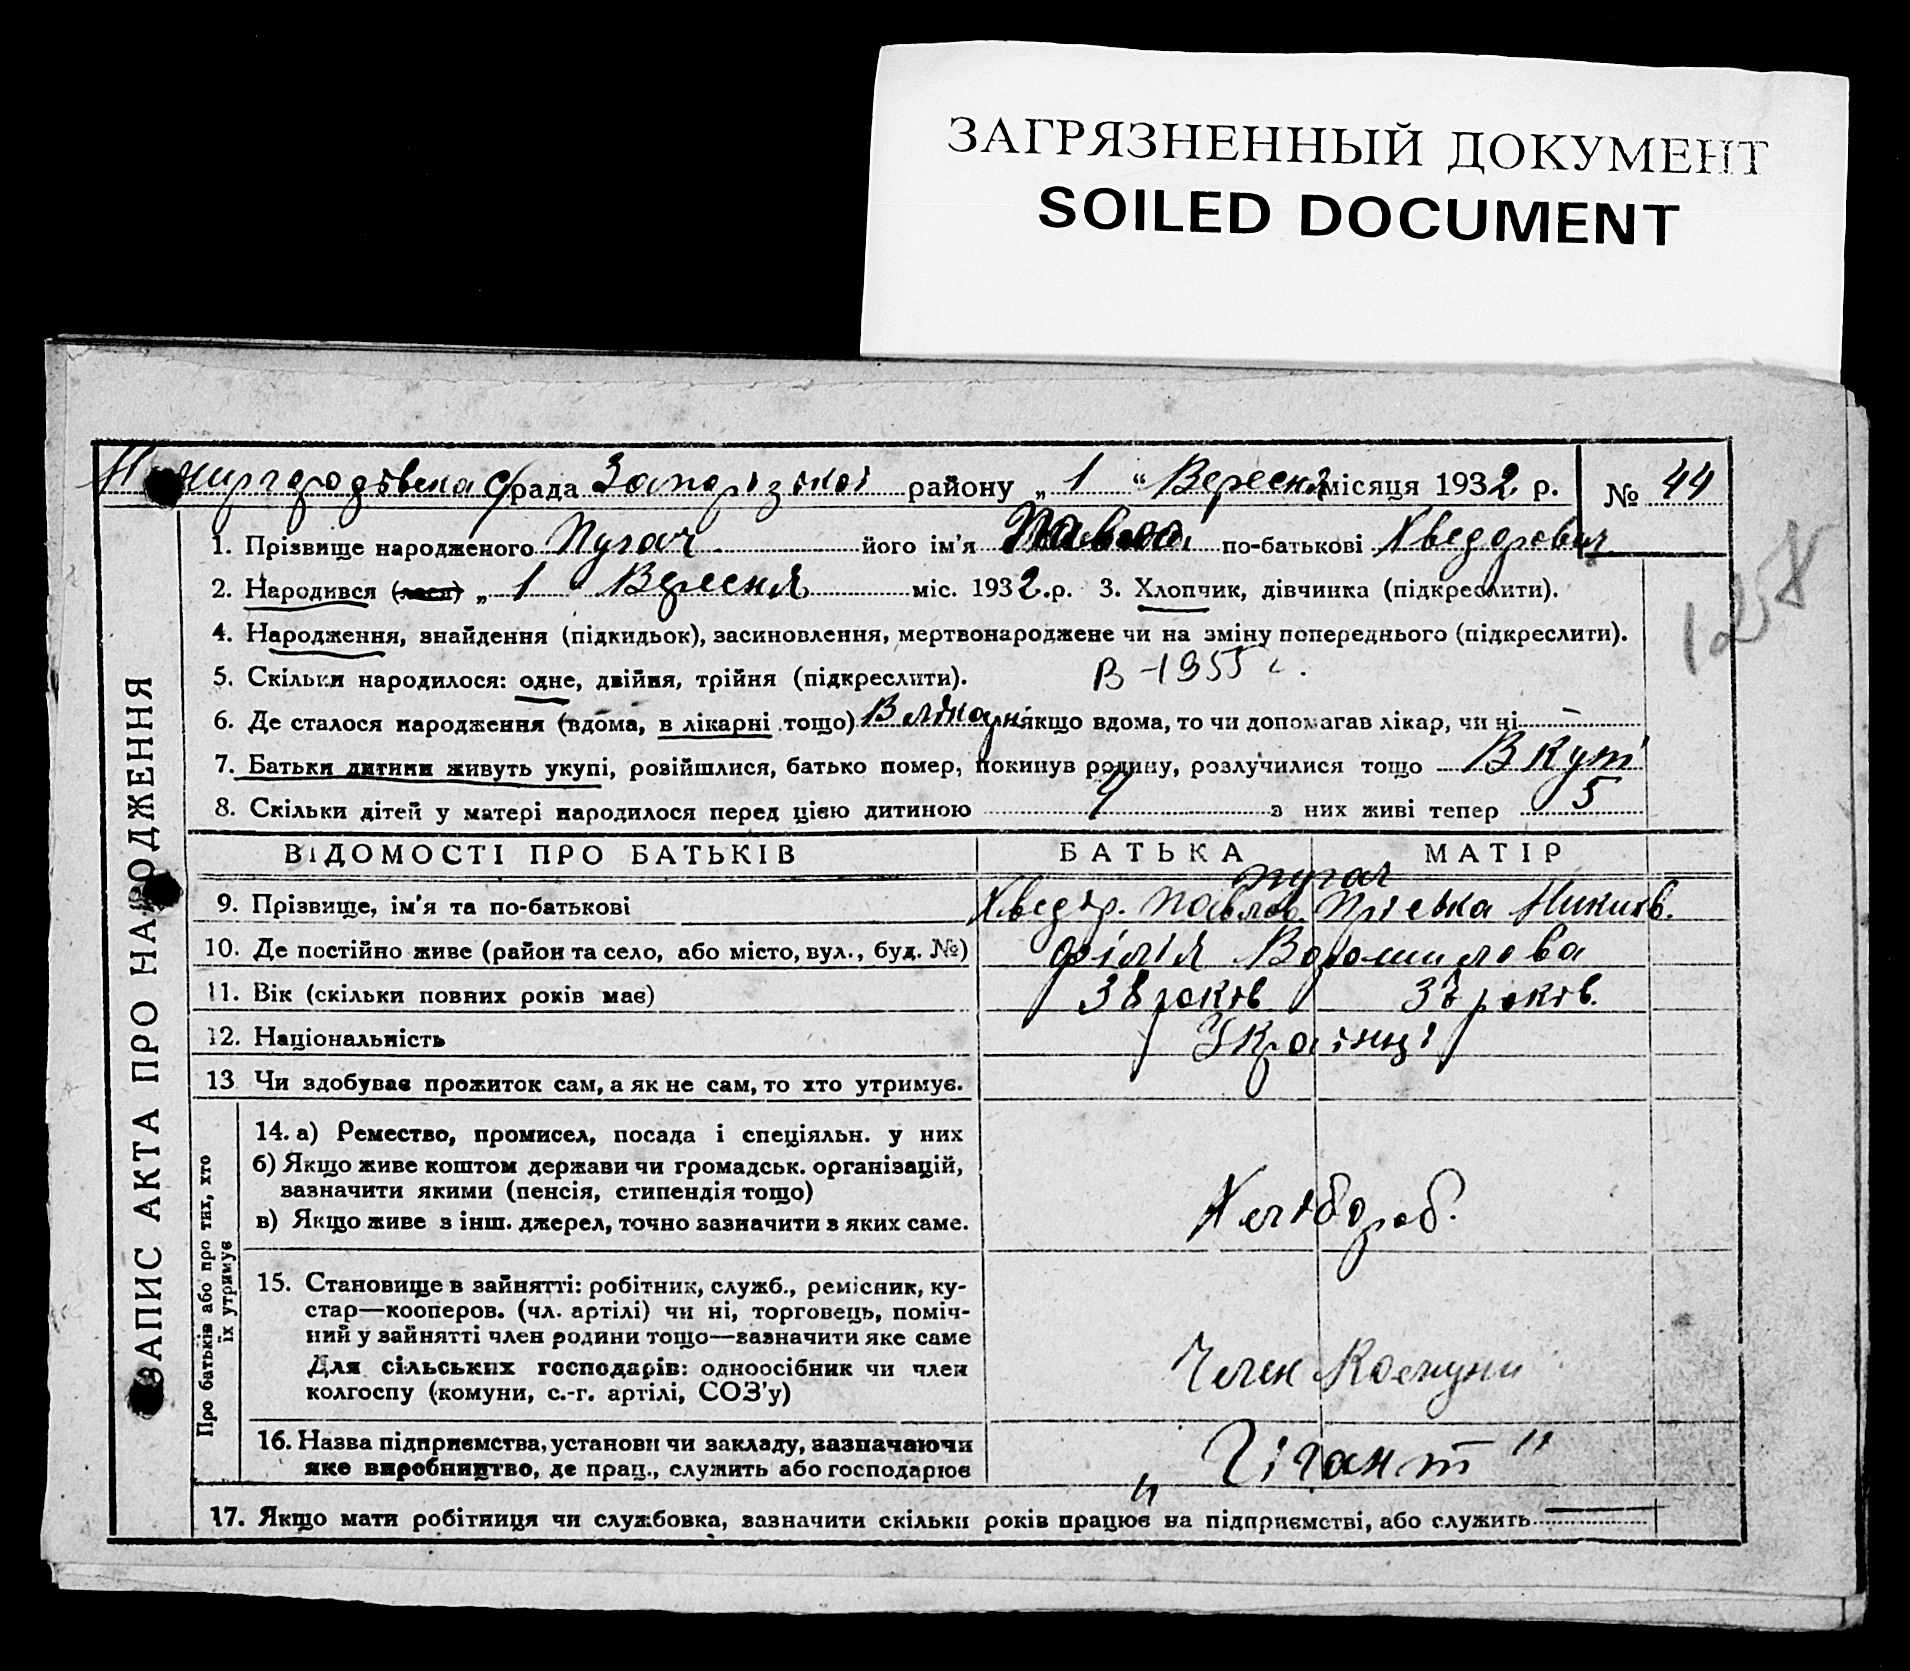 ЗАГРЯЗНЕННЫЙ ДОКУМЕНТ
SOILED DOCUMENT
рада Запорізької району „ 1 “ Вересня місяця 1932 р. № 44
1. Прізвище народженого Пугач його ім'я Павло по-батькові Хведорович
2. Народився (лася) „ 1 Вересня міс. 1932 р. 3. Хлопчик, дівчинка (підкреслити).
4. Народження, знайдення (підкидьок), засиновлення, мертвонароджене чи на зміну попереднього (підкреслити).
В-1955 г.
5. Скільки народилося: одне, двійня, трійня (підкреслити).
6. Де сталося народження (вдома, в лікарні тощо) В лікарні якщо вдома, то чи допомагав лікар, чи ні —
7. Батьки дитини живуть укупі, розійшлися, батько помер, покинув родину, розлучилися тощо В купі
8. Скільки дітей у матері народилося перед цією дитиною з них живі тепер 5
128
ЗАПИС АКТА ПРО НАРОДЖЕННЯ
ВІДОМОСТІ ПРО БАТЬКІВ БАТЬКА МАТІР
Пугач
9. Прізвище, ім'я та по-батькові Хведір. Павлов. Пріська Никиф.
10. Де постійно живе (район та село, або місто, вул., буд. №) філія Ворошилова
11. Вік (скільки повних років має) 38 років 37 років.
12. Національність Українці
13 Чи здобуває прожиток сам, а як не сам, то хто утримує.
Про батьків або про тих, хто
їх утримує
14. а) Ремество, промисел, посада і спеціяльн. у них
б) Якщо живе коштом держави чи громадськ. організацій,
зазначити якими (пенсія, стипендія тощо)
в) Якщо живе з інш. джерел, точно зазначити з яких саме.
Хлібороб.
15. Становище в зайнятті: робітник, служб., ремісник, ку-
стар—кооперов. (чл. артілі) чи ні, торговець, поміч-
ний у зайнятті член родини тощо—зазначити яке саме
Для сільських господарів: одноосібник чи член
колгоспу (комуни, с.-г. артілі, СОЗ'у)
Член Комуни
16. Назва підприємства, установи чи закладу, зазначаючи
яке виробництво, де прац., служить або господарює
„Гігант"
17. Якщо мати робітниця чи службовка, зазначити скільки років працює на підприємстві, або служить —